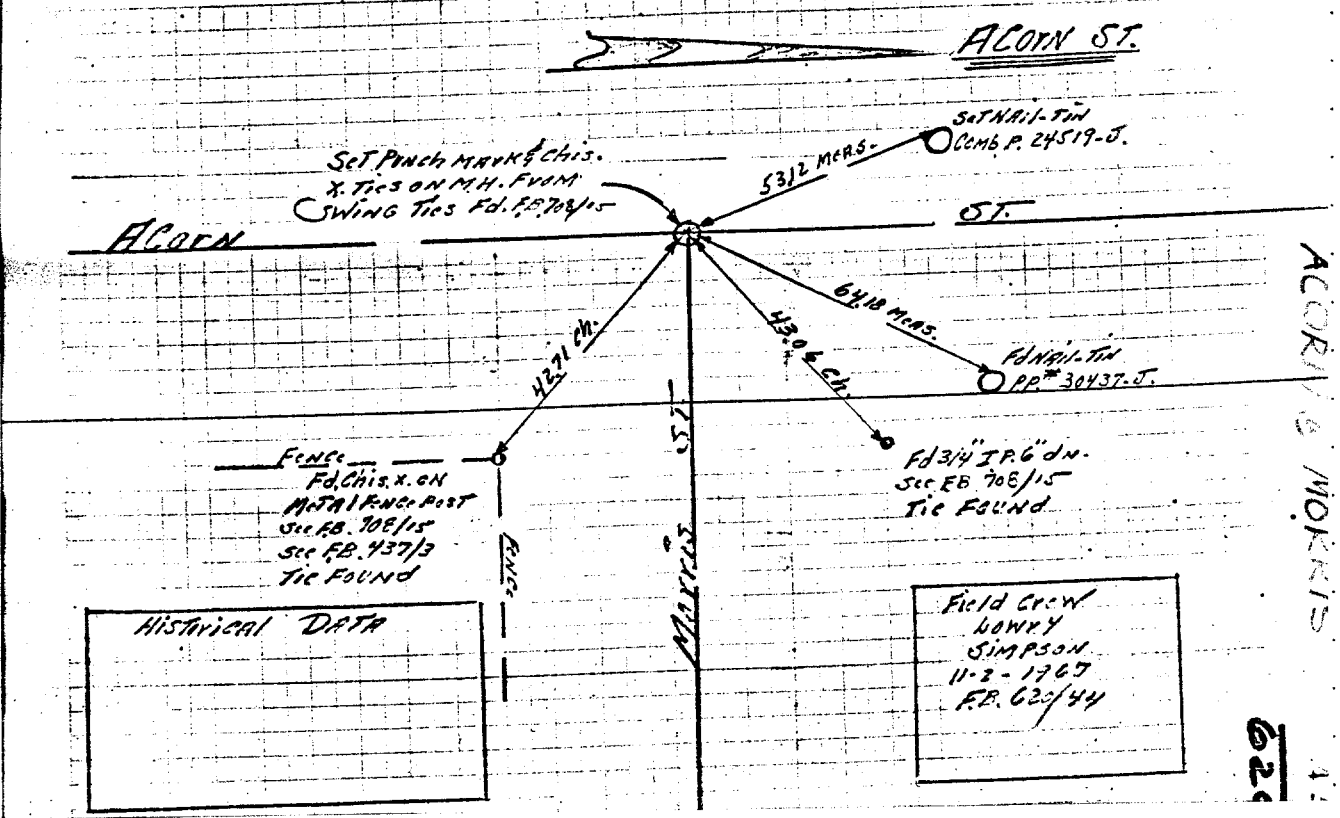 ACORN ST.
Set Nail-Tin
Comb P. 24519-J.
Set Punch Mark & Chis.
X. Ties on M.H. From
Swing Ties Fd. F.B. 708/15
53.12 Meas.
ACORN
ST.
64.18 Meas.
42.71 Ch.
43.06 Ch.
Fd Nail-Tin
P.P.# 30437-J.
Fence
Fd. Chis. X. on
Metal Fence Post
See F.B. 708/15
See F.B. 437/3
Tie Found
Fd 3/4" I.P. 6" dn.
See F.B. 708/15
Tie Found
Fence
Morris ST.
Historical DATA
Field Crew
Lowry
Simpson
11-2-1967
F.B. 620/44
ACORN & MORRIS